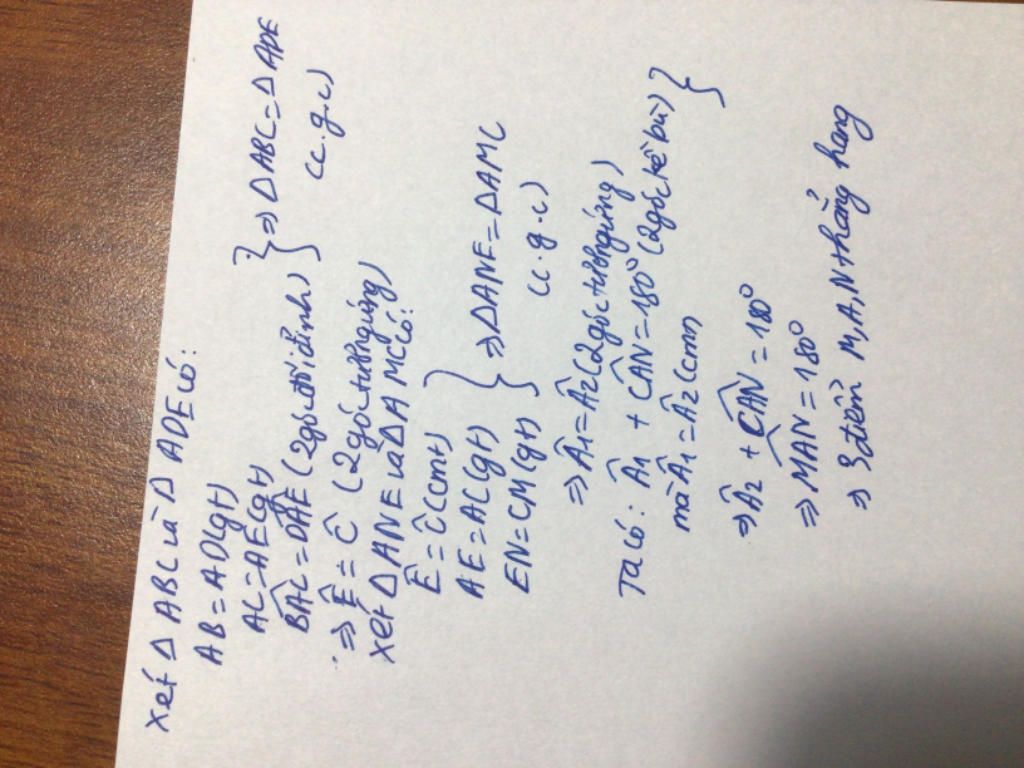 Xét Δ ABC và Δ ADE có:
AB = AD (gt)
AC = AE (gt)
BÂC = DÂE (2 góc đối đỉnh)
} ⇒ Δ ABC = Δ ADE
(c.g.c)
⇒ Ê = Ĉ (2 góc tương ứng)
Xét Δ ANE và Δ AMC có:
Ê = Ĉ (cmt)
AE = AC (gt)
EN = CM (gt)
} ⇒ Δ ANE = Δ AMC
(c.g.c)
⇒ Â1 = Â2 (2 góc tương ứng)
Ta có: Â1 + CÂN = 180° (2 góc kề bù)
mà Â1 = Â2 (cmt)
}
⇒ Â2 + CÂN = 180°
⇒ MÂN = 180°
⇒ 3 điểm M, A, N thẳng hàng